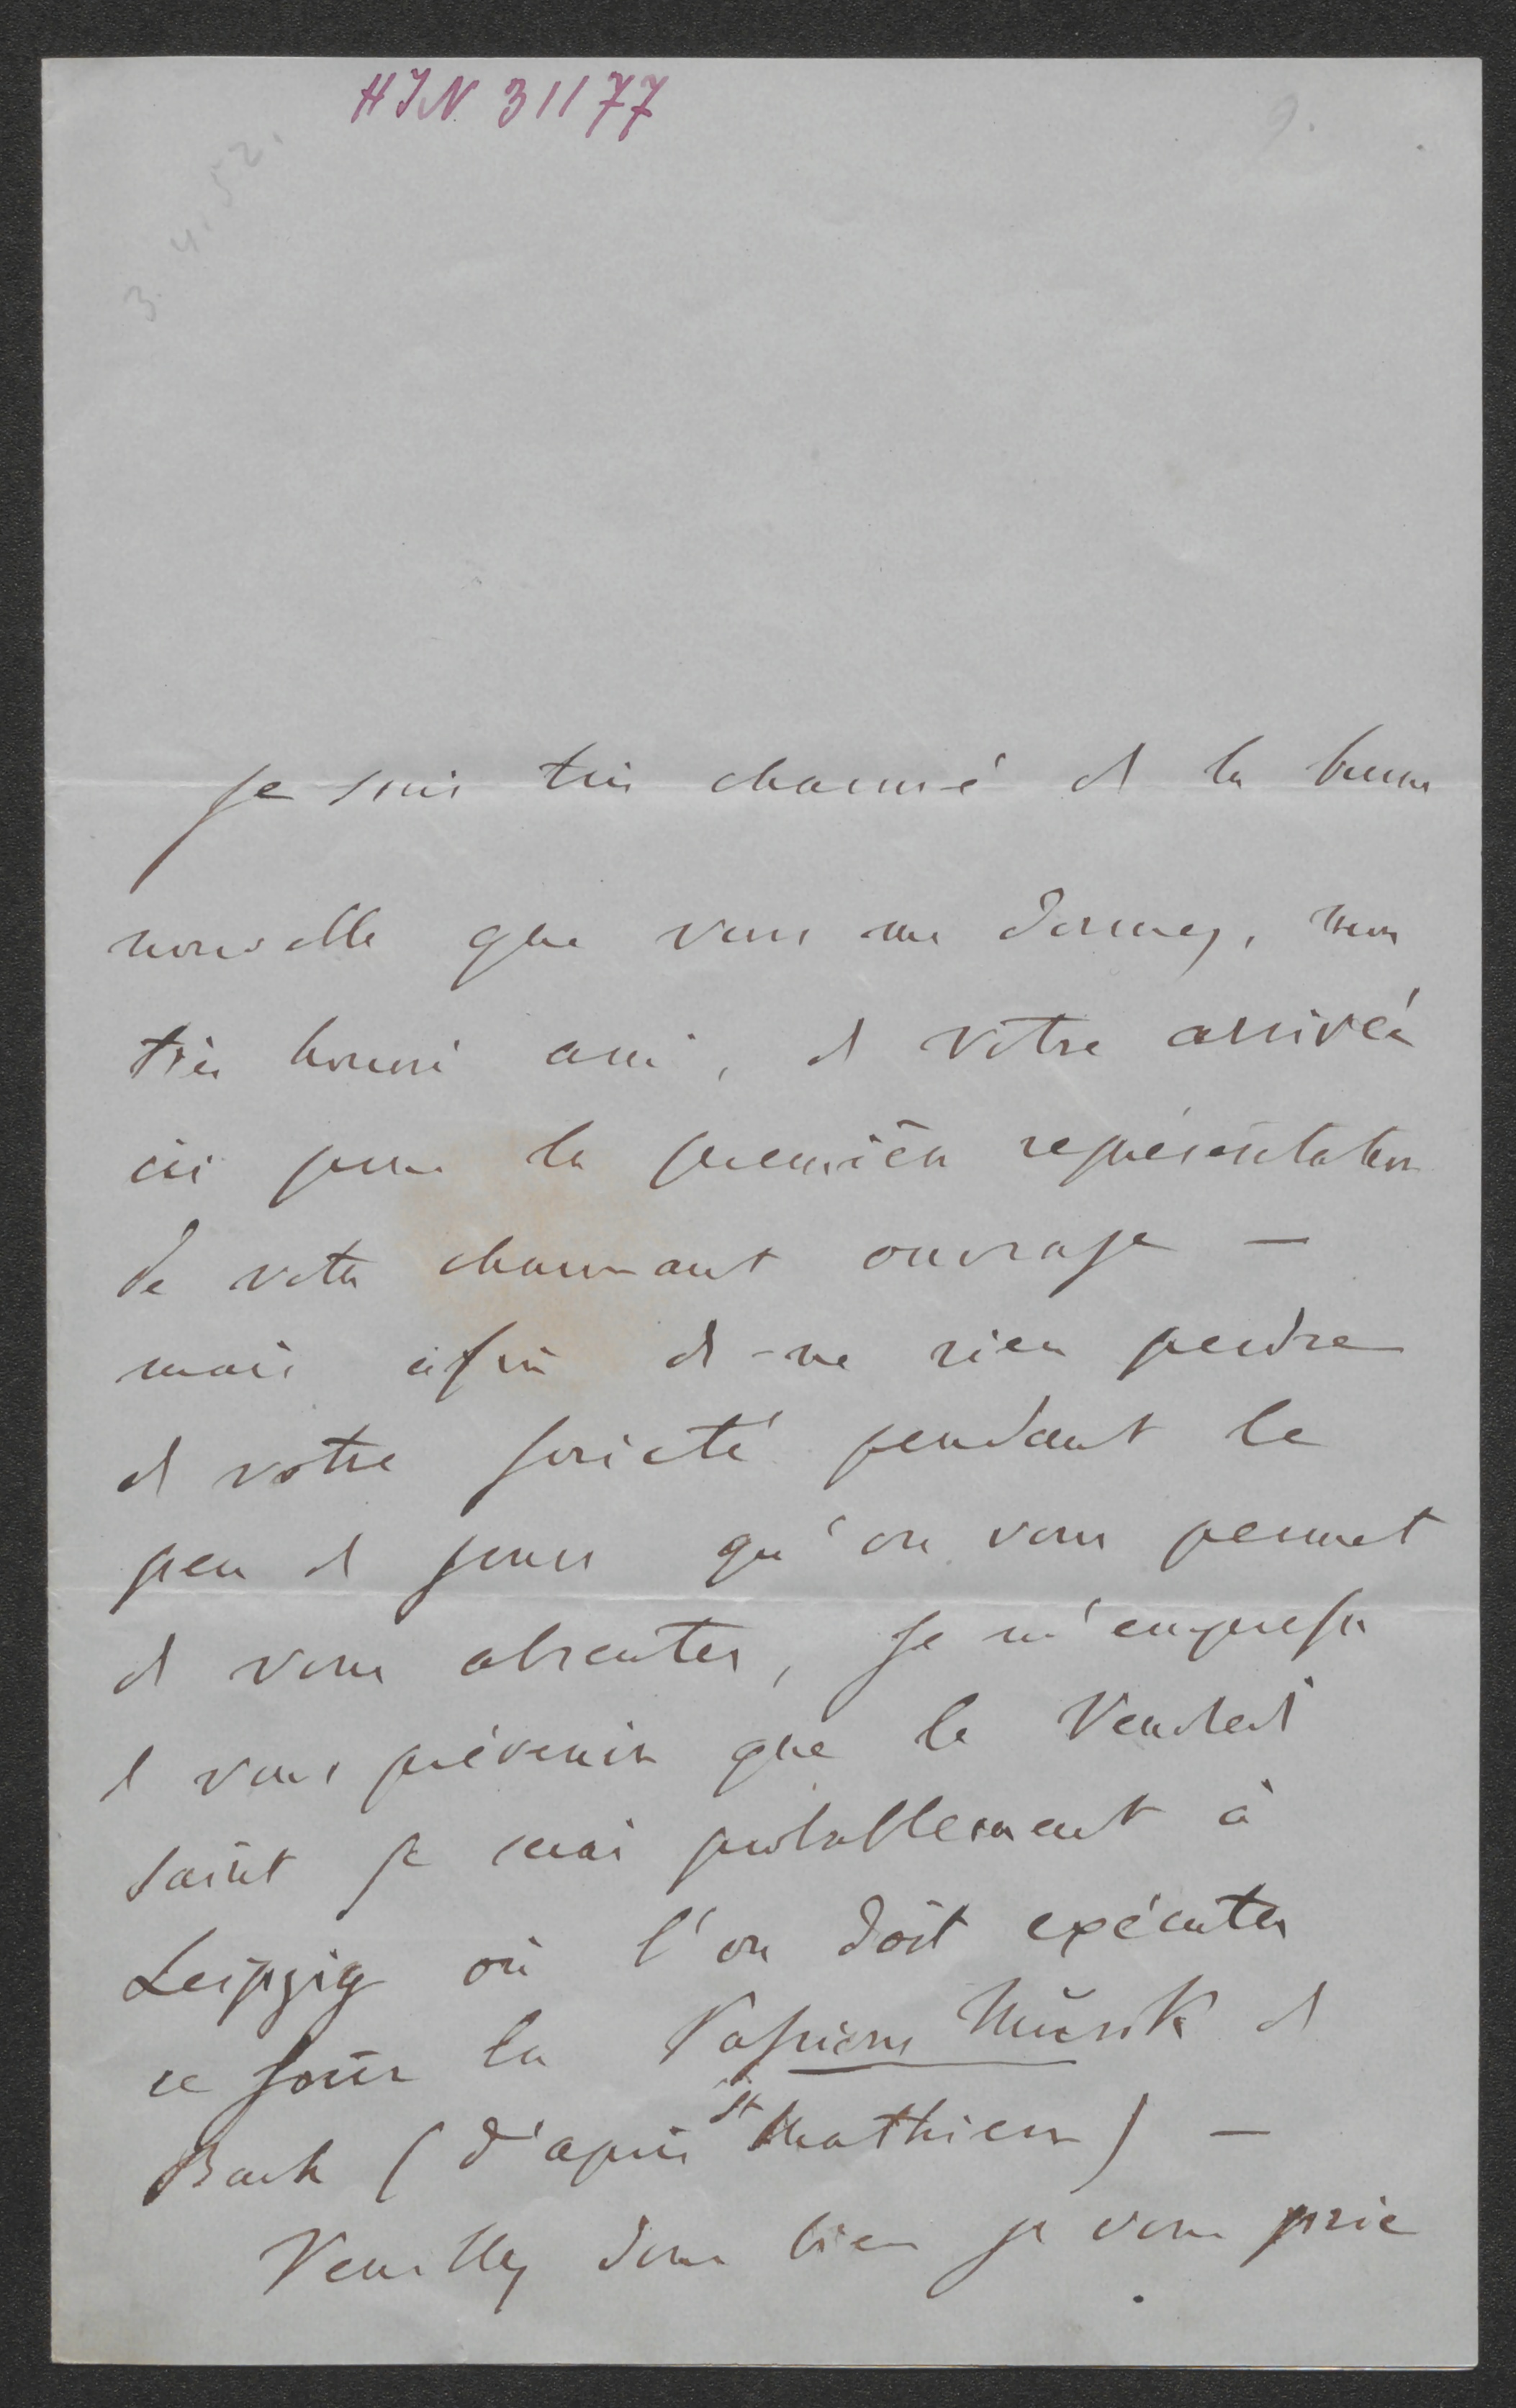 HIN 31177
3. 4. 52.
9.
Je suis très charmé de la bonne
nouvelle que vous me donnez, mon
très honoré ami, de votre arrivée
ici pour la première représentation
de votre charmant ouvrage —
mais afin de ne rien perdre
de votre société pendant le
peu de jours qu'on vous permet
de vous absenter, je m'empresse
de vous prévenir que le Vendredi
saint je serai probablement à
Leipzig où l'on doit exécuter
ce jour la Passions Musik de
Bach (d'après St Mathieu) —
Veuillez donc bien je vous prie